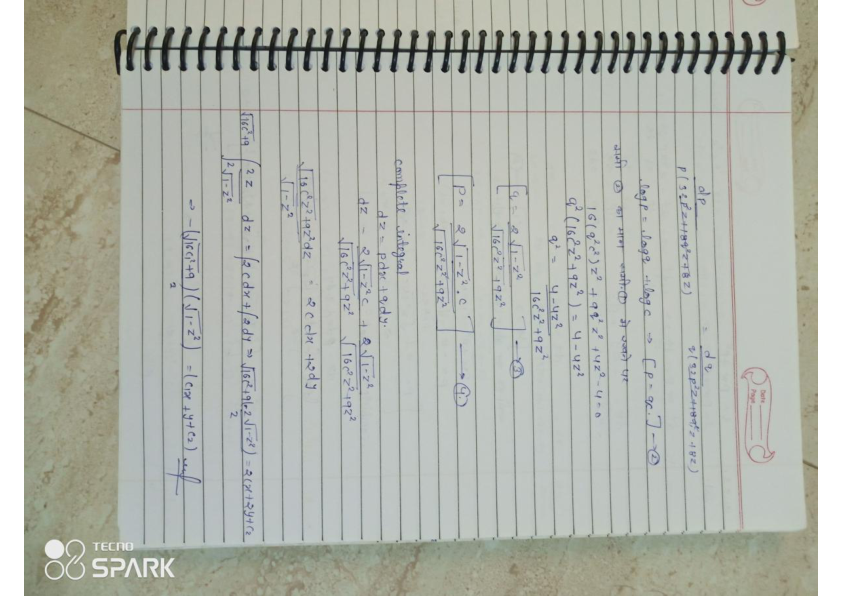 Date
Page
dp / p(32p²z+18q²z+8z) = dq / q(32p²z+18q²z+8z)
logp = logq + logc → [p = qc] → ②
समी ② का मान समी ① में रखने पर
16(q²c²)z² + 9q²z² + 4z² - 4 = 0
q²(16c²z² + 9z²) = 4 - 4z²
q² = 4 - 4z² / 16c²z² + 9z²
[q = 2√1-z² / √16c²z² + 9z²] → ③
[p = 2√1-z² . c / √16c²z² + 9z²] → ④
complete integral
dz = pdx + qdy.
dz = 2√1-z² c / √16c²z² + 9z² + 2√1-z² / √16c²z² + 9z²
√16c²z² + 9z² dz / √1-z² = 2cdx + 2dy
√16c²+9 ∫ 2z / 2√1-z² dz = ∫2cdx + ∫2dy ⇒ √16c²+9 (-2√1-z²) / 2 = 2cx + 2y + c₂
⇒ -(√16c²+9)(√1-z²) / 2 = (cx + y + c₂)
TECNO
SPARK